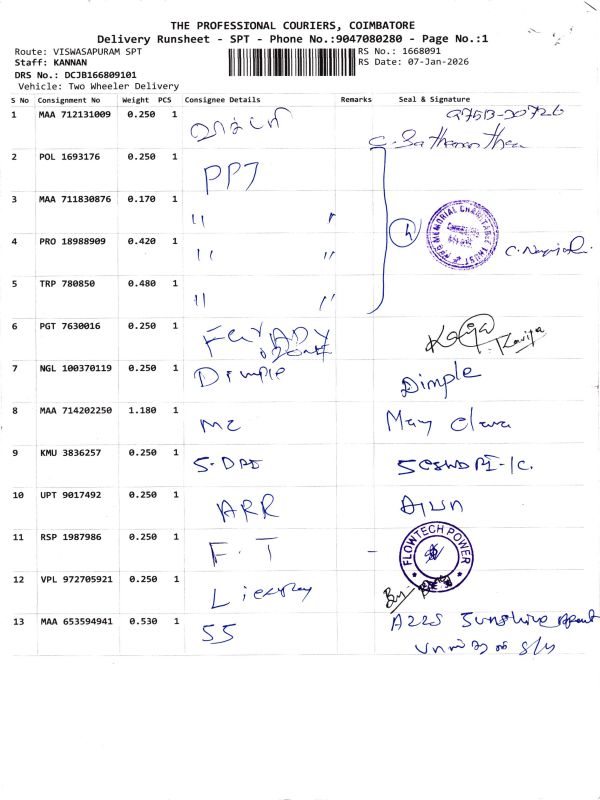 THE PROFESSIONAL COURIERS, COIMBATORE
Delivery Runsheet - SPT - Phone No.:9047080280 - Page No.:1
Route: VISWASAPURAM SPT
RS No.: 1668091
Staff: KANNAN
RS Date: 07-Jan-2026
DRS No.: DCJB166809101
Vehicle: Two Wheeler Delivery
S No Consignment No Weight PCS Consignee Details Remarks Seal & Signature
1 MAA 712131009 0.250 1
2 POL 1693176 0.250 1 PPT
3 MAA 711830876 0.170 1 " "
4 PRO 18988909 0.420 1 " "
5 TRP 780850 0.480 1 " "
6 PGT 7630016 0.250 1 Kavija
7 NGL 100370119 0.250 1 Dimple Dimple
8 MAA 714202250 1.180 1 MC May Clara
9 KMU 3836257 0.250 1
10 UPT 9017492 0.250 1 ARR
11 RSP 1987986 0.250 1 F.T FLOWTECH POWER
12 VPL 972705921 0.250 1
13 MAA 653594941 0.530 1 SS